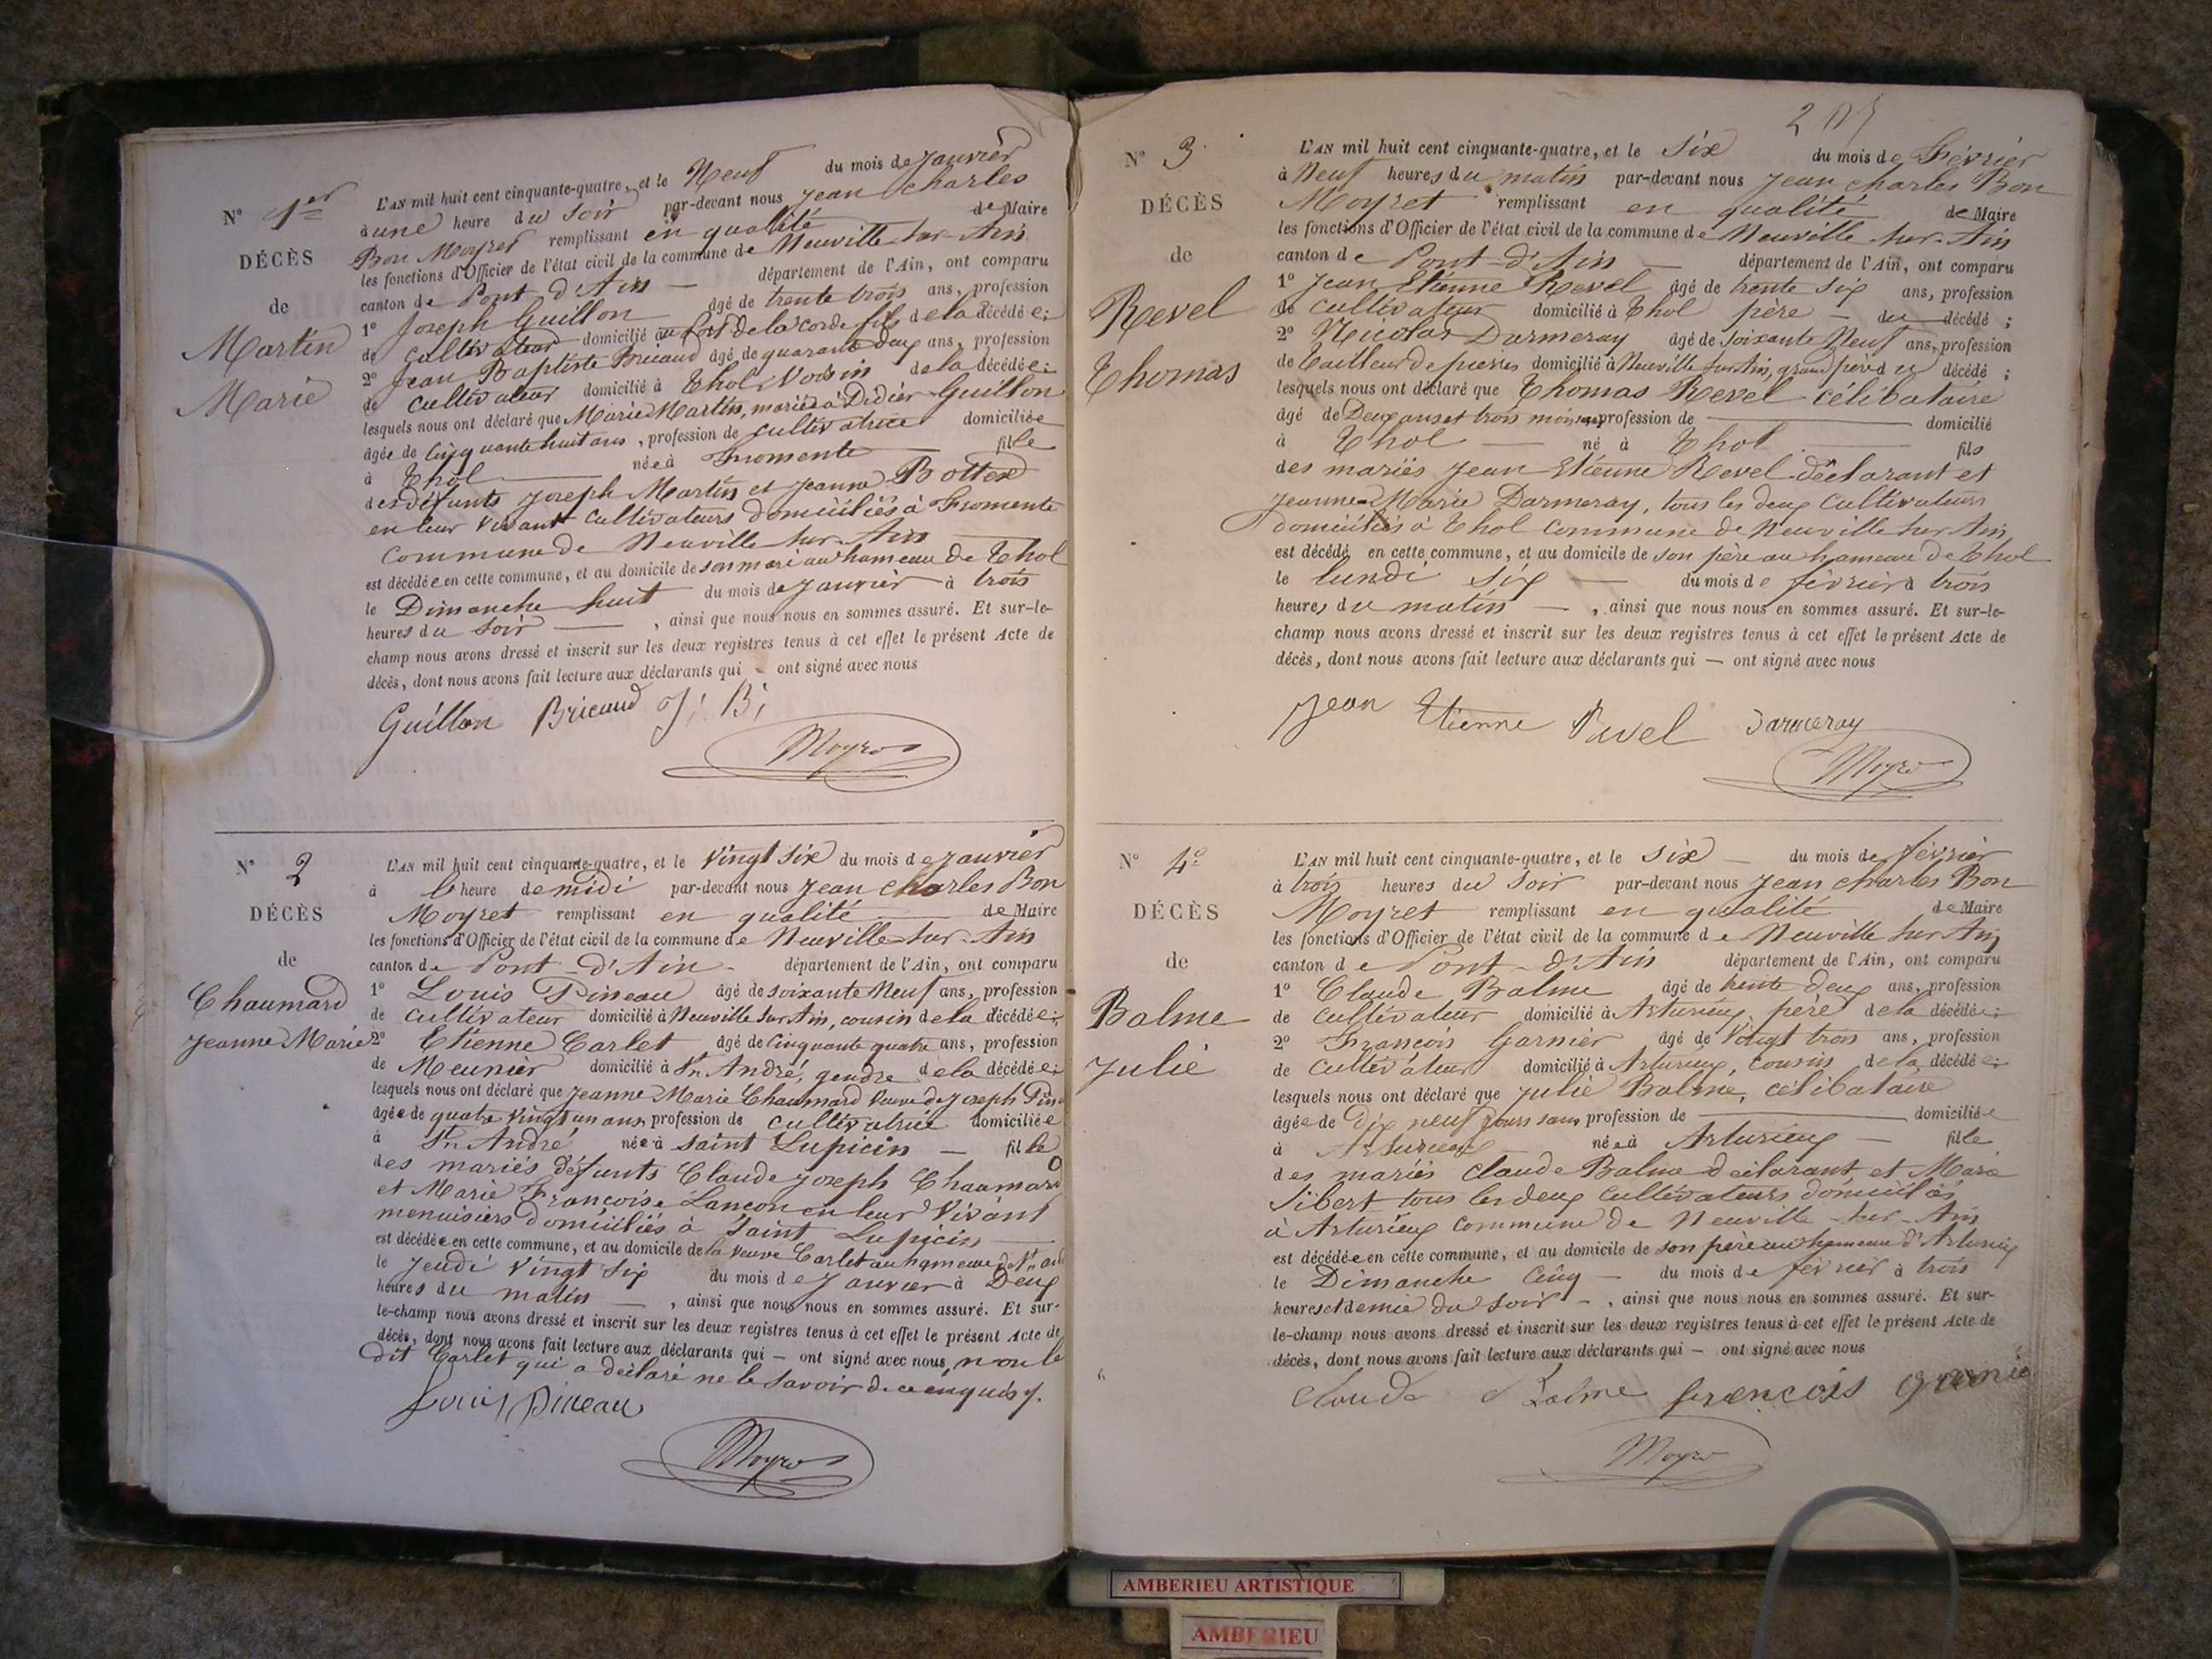 N° 1er
DÉCÈS
de
Martin
Marie
L'AN mil huit cent cinquante-quatre, et le Neuf du mois de Janvier
à une heure du Soir par-devant nous Jean Charles
Bon Moyret remplissant en qualité de Maire
les fonctions d'Officier de l'état civil de la commune de Neuville sur Ain
canton de Pont d'Ain département de l'Ain, ont comparu
1° Joseph Guillon âgé de trente trois ans, profession
de Cultivateur domicilié au Port de la Corde fils de la décédée ;
2° Jean Baptiste Bricaud âgé de quarante deux ans, profession
de Cultivateur domicilié à Thol, Voisin de la décédée ;
lesquels nous ont déclaré que Marie Martin, mariée à Didier Guillon
âgée de Cinquante huit ans, profession de Cultivatrice domiciliée
à Thol née à Fromente fille
des défunts Joseph Martin et Jeanne Bottex
en leur vivant Cultivateurs domiciliés à Fromente
Commune de Neuville sur Ain
est décédée en cette commune, et au domicile de son mari au hameau de Thol
le Dimanche huit du mois de Janvier à trois
heures du Soir , ainsi que nous nous en sommes assuré. Et sur-le-
champ nous avons dressé et inscrit sur les deux registres tenus à cet effet le présent Acte de
décès, dont nous avons fait lecture aux déclarants qui - ont signé avec nous
Guillon Bricaud J. B.
Moyret
N° 2
DÉCÈS
de
Chaumard
Jeanne Marie
L'AN mil huit cent cinquante-quatre, et le Vingt Six du mois de Janvier
à l'heure de midi par-devant nous Jean Charles Bon
Moyret remplissant en qualité de Maire
les fonctions d'Officier de l'état civil de la commune de Neuville sur Ain
canton de Pont d'Ain département de l'Ain, ont comparu
1° Louis Pineau âgé de soixante Neuf ans, profession
de Cultivateur domicilié à Neuville sur Ain, cousin de la décédée ;
2° Etienne Carlet âgé de Cinquante quatre ans, profession
de Meunier domicilié à St André, gendre de la décédée ;
lesquels nous ont déclaré que Jeanne Marie Chaumard Veuve de Joseph
âgée de quatre vingt un ans profession de Cultivatrice domiciliée
à St André née à Saint Lupicin fille
des mariés défunts Claude Joseph Chaumard
et Marie Françoise Lançon en leur Vivant
menuisiers domiciliés à Saint Lupicin
est décédée en cette commune, et au domicile de la Veuve Carlet au hameau de St
le Jeudi Vingt Six du mois de Janvier à Deux
heures du matin , ainsi que nous nous en sommes assuré. Et sur-
le-champ nous avons dressé et inscrit sur les deux registres tenus à cet effet le présent Acte de
décès, dont nous avons fait lecture aux déclarants qui - ont signé avec nous, non le
dit Carlet qui a déclaré ne le savoir de ce enquis
Louis Pineau
Moyret
2
N° 3
DÉCÈS
de
Revel
Thomas
L'AN mil huit cent cinquante-quatre, et le Six du mois de Février
à Neuf heures du matin par-devant nous Jean Charles Bon
Moyret remplissant en qualité de Maire
les fonctions d'Officier de l'état civil de la commune de Neuville sur Ain
canton de Pont d'Ain département de l'Ain, ont comparu
1° Jean Etienne Revel âgé de trente Six ans, profession
de Cultivateur domicilié à Thol père du décédé ;
2° Nicolas Darmeray âgé de soixante Neuf ans, profession
de tailleur de pierres domicilié à Neuville sur Ain, grand père du décédé ;
lesquels nous ont déclaré que Thomas Revel célibataire
âgé de Deux ans et trois mois sans profession de domicilié
à Thol né à Thol fils
des mariés Jean Etienne Revel déclarant et
Jeanne Marie Darmeray, tous les deux Cultivateurs
domiciliés à Thol Commune de Neuville sur Ain
est décédé en cette commune, et au domicile de son père au hameau de Thol
le lundi Six du mois de février à trois
heures du matin , ainsi que nous nous en sommes assuré. Et sur-le-
champ nous avons dressé et inscrit sur les deux registres tenus à cet effet le présent Acte de
décès, dont nous avons fait lecture aux déclarants qui — ont signé avec nous
Jean Etienne Revel Darmeray
Moyret
N° 4e
DÉCÈS
de
Balme
Julie
L'AN mil huit cent cinquante-quatre, et le Six du mois de février
à trois heures du Soir par-devant nous Jean Charles Bon
Moyret remplissant en qualité de Maire
les fonctions d'Officier de l'état civil de la commune de Neuville sur Ain
canton de Pont d'Ain département de l'Ain, ont comparu
1° Claude Balme âgé de trente Deux ans, profession
de Cultivateur domicilié à Arturieux père de la décédée ;
2° François Garnier âgé de Vingt trois ans, profession
de Cultivateur domicilié à Arturieux, Cousin de la décédée ;
lesquels nous ont déclaré que Julie Balme, célibataire
âgée de Dix neuf Jours sans profession de domiciliée
à Arturieux née à Arturieux fille
des mariés Claude Balme déclarant et Marie
Sibert tous les deux Cultivateurs domiciliés
à Arturieux Commune de Neuville sur Ain
est décédée en cette commune, et au domicile de son père au hameau d'Arturieux
le Dimanche Cinq du mois de février à trois
heures et demie du Soir , ainsi que nous nous en sommes assuré. Et sur-
le-champ nous avons dressé et inscrit sur les deux registres tenus à cet effet le présent Acte de
décès, dont nous avons fait lecture aux déclarants qui — ont signé avec nous
Claude Balme françois garnie
Moyret
AMBERIEU ARTISTIQUE
AMBERIEU